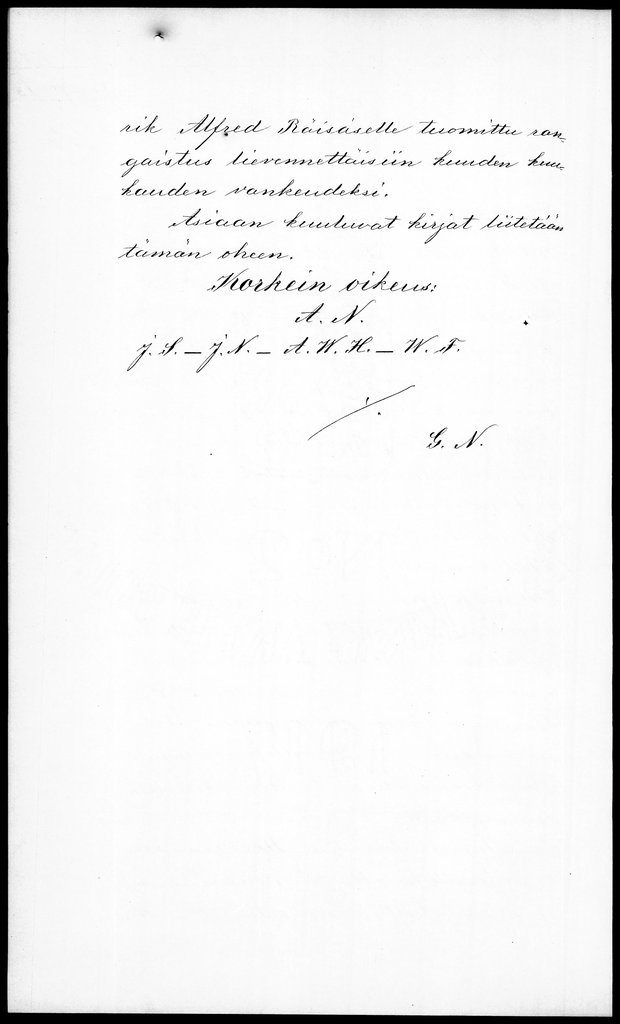 rik Alfred Räisäselle tuomittu ran-
gaistus lievennettäisiin kuuden kuu-
kauden vankeudeksi.
Asiaan kuuluvat kirjat liitetään
tämän oheen.
Korkein oikeus:
A. N.
J. S. — J. N. — A. W. H. — W. F.
G. N.